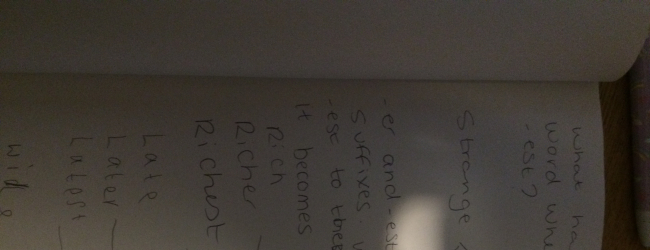 what ha
word whe
-est?
Strange
-er and -est
Suffixes.
-est to the
It becomes
Rich
Richer
Richest
Late
Later
Latest
Wide